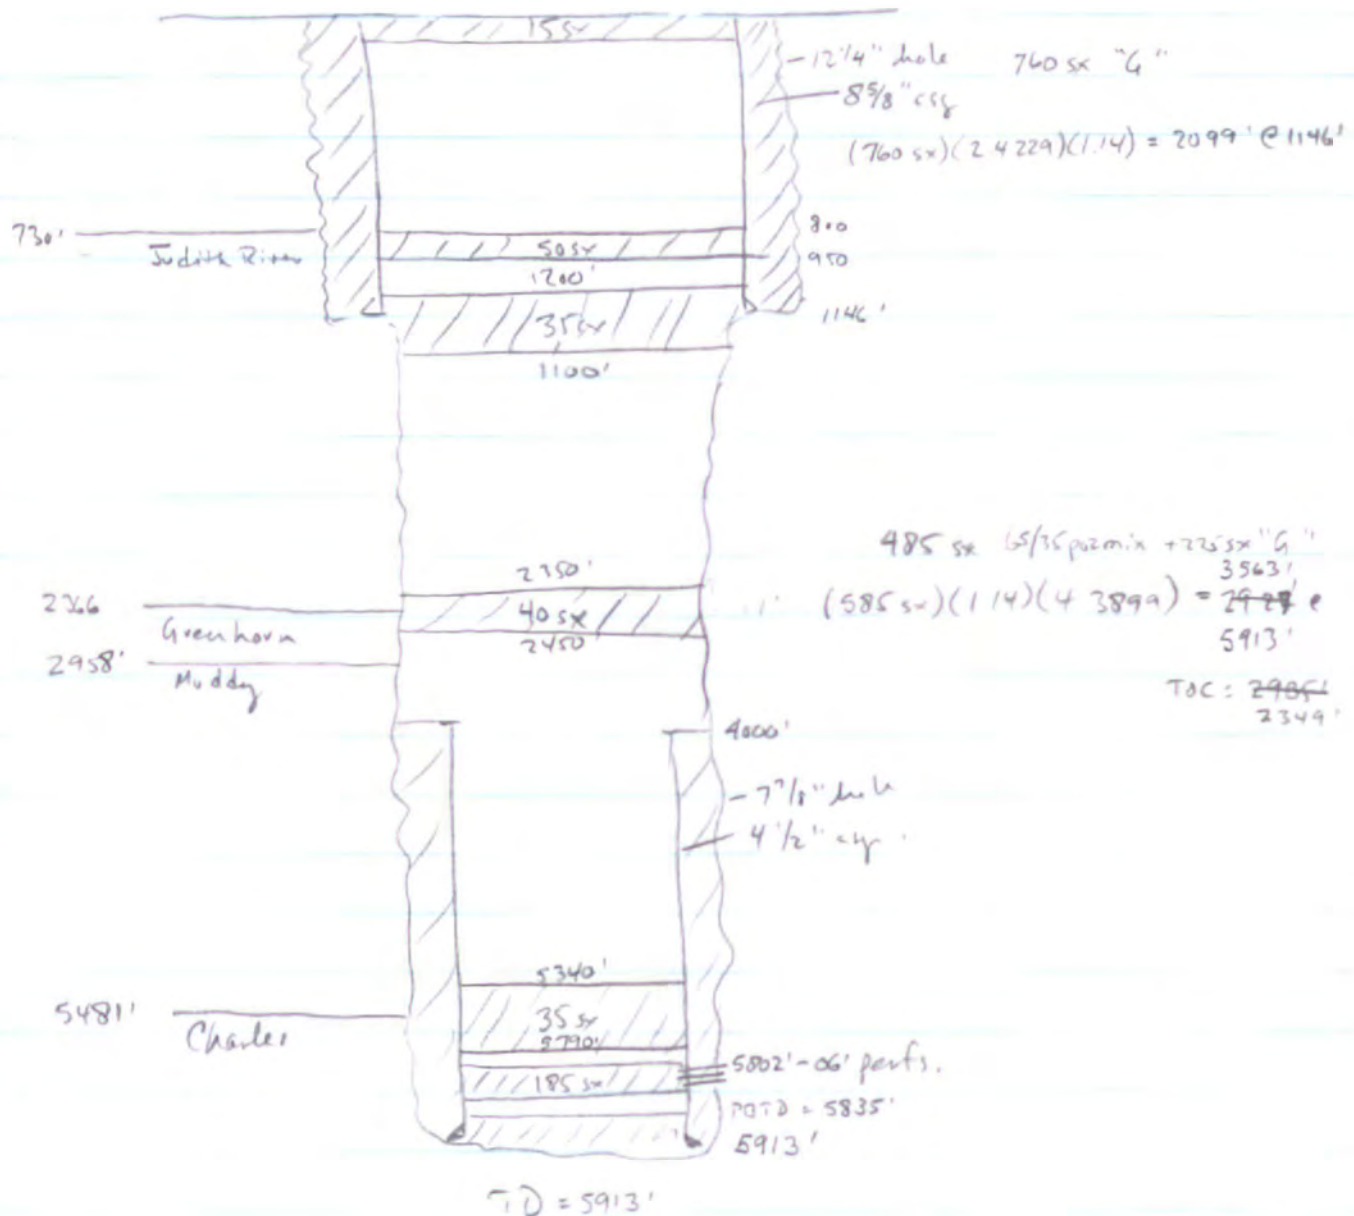 15 sx
- 12 1/4" hole 760 sx "G"
8 5/8" csg
(760 sx)(2.4229)(1.14) = 2099' @ 1146'
730'
Judith River
800
50 sx
950
1200'
1146'
35 sx
1100'
485 sx 65/35 pozmix + 225 sx "G"
3563'
(585 sx)(1.14)(4.3899) = @
5913'
TOC =
2349'
2350'
2366
40 sx
Greenhorn
2450
2958'
Muddy
4000'
- 7 7/8" hole
4 1/2" csg
5340'
5481'
Charles
35 sx
5790'
5802'-06' perfs.
185 sx
PBTD = 5835'
5913'
TD = 5913'